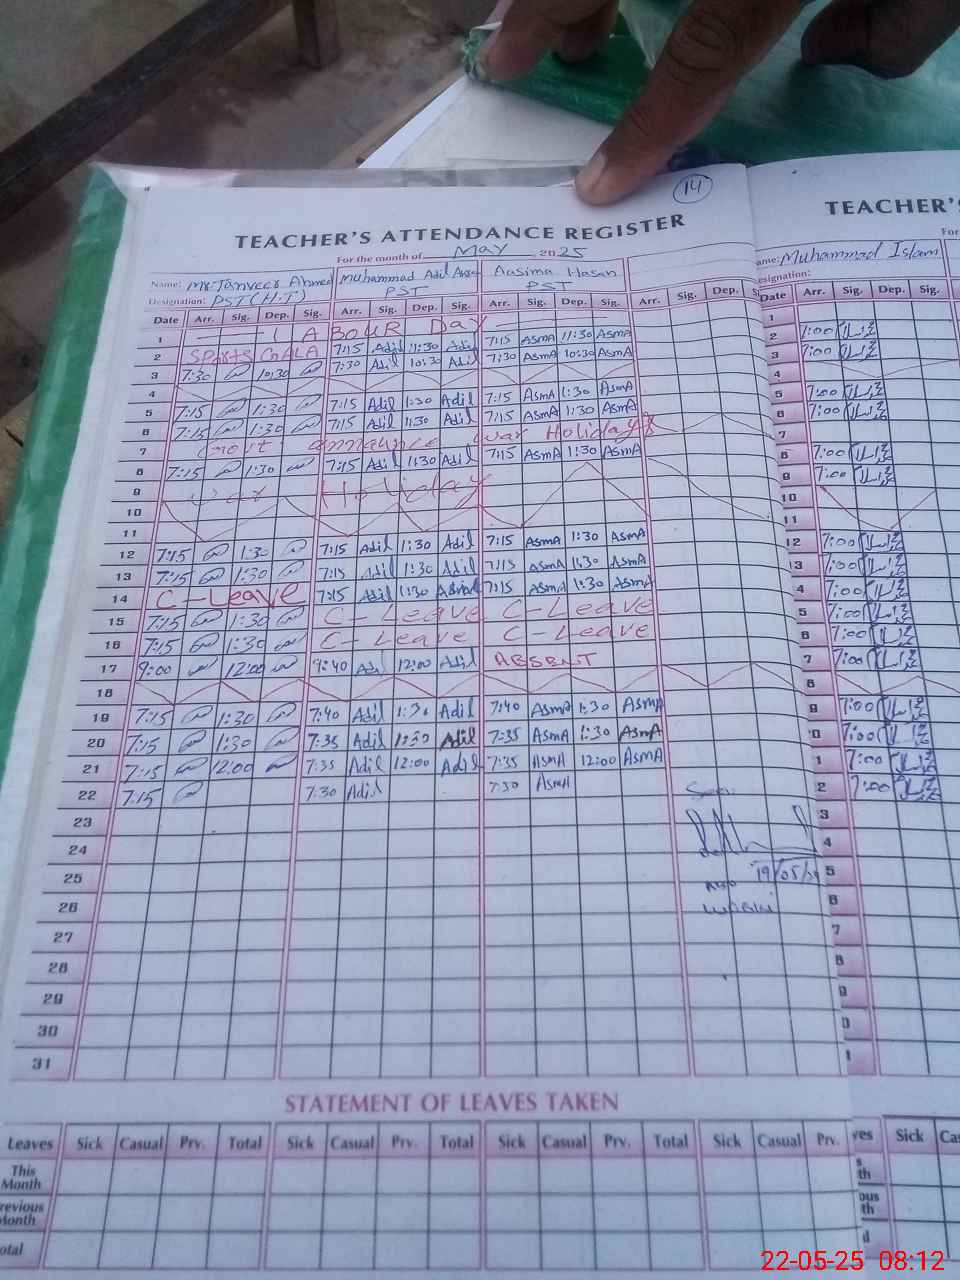 14
TEACHER'S ATTENDANCE REGISTER
For the month of May 2025
Name: Mr Tanveer Ahmed Muhammad Adil Aasima Hasan
Designation: PST (H.T) PST PST
Date Arr. Sig. Dep. Sig. Arr. Sig. Dep. Sig. Arr. Sig. Dep. Sig. Arr. Sig. Dep.
1 LABOUR Day
2 Sports GALA 7:15 Adil 11:30 Adil 7:15 AsmA 11:30 AsmA
3 7:30 10:30 7:30 Adil 10:30 Adil 7:30 AsmA 10:30 AsmA
4
5 7:15 1:30 7:15 Adil 1:30 Adil 7:15 AsmA 1:30 AsmA
6 7:15 1:30 7:15 Adil 1:30 Adil 7:15 AsmA 1:30 AsmA
7 Govt announce war Holiday
8 7:15 1:30 7:15 Adil 1:30 Adil 7:15 AsmA 1:30 AsmA
9 War Holiday
10
11
12 7:15 1:30 7:15 Adil 1:30 Adil 7:15 AsmA 1:30 AsmA
13 7:15 1:30 7:15 Adil 1:30 Adil 7:15 AsmA 1:30 AsmA
14 C-Leave 7:15 Adil 1:30 7:15 AsmA 1:30 AsmA
15 7:15 1:30 C-Leave C-Leave
16 7:15 1:30 C-Leave C-Leave
17 9:00 12:00 9:40 Adil 12:00 Adil ABSENT
18
19 7:15 1:30 7:40 Adil 1:30 Adil 7:40 AsmA 1:30 AsmA
20 7:15 1:30 7:35 Adil 1:30 Adil 7:35 AsmA 1:30 AsmA
21 7:15 12:00 7:35 Adil 12:00 Adil 7:35 AsmA 12:00 AsmA
22 7:15 7:30 Adil 7:30 AsmA
23
24
25
26
27
28
29
30
31
19/05/
STATEMENT OF LEAVES TAKEN
Leaves Sick Casual Prv. Total Sick Casual Prv. Total Sick Casual Prv. Total Sick Casual Prv.
This Month
revious Month
otal
TEACHER'S
For
ame: Muhammad Islam
esignation:
Date Arr. Sig. Dep. Sig.
1
2 7:00
3 7:00
4
5 7:00
6 7:00
7
8 7:00
9 7:00
10
11
12 7:00
3 7:00
4 7:00
5 7:00
6 7:00
7 7:00
8
9 7:00
0 7:00
1 7:00
2 7:00
3
4
5
6
7
8
9
0
1
ves Sick Cas
s th
ous th
l
22-05-25 08:12